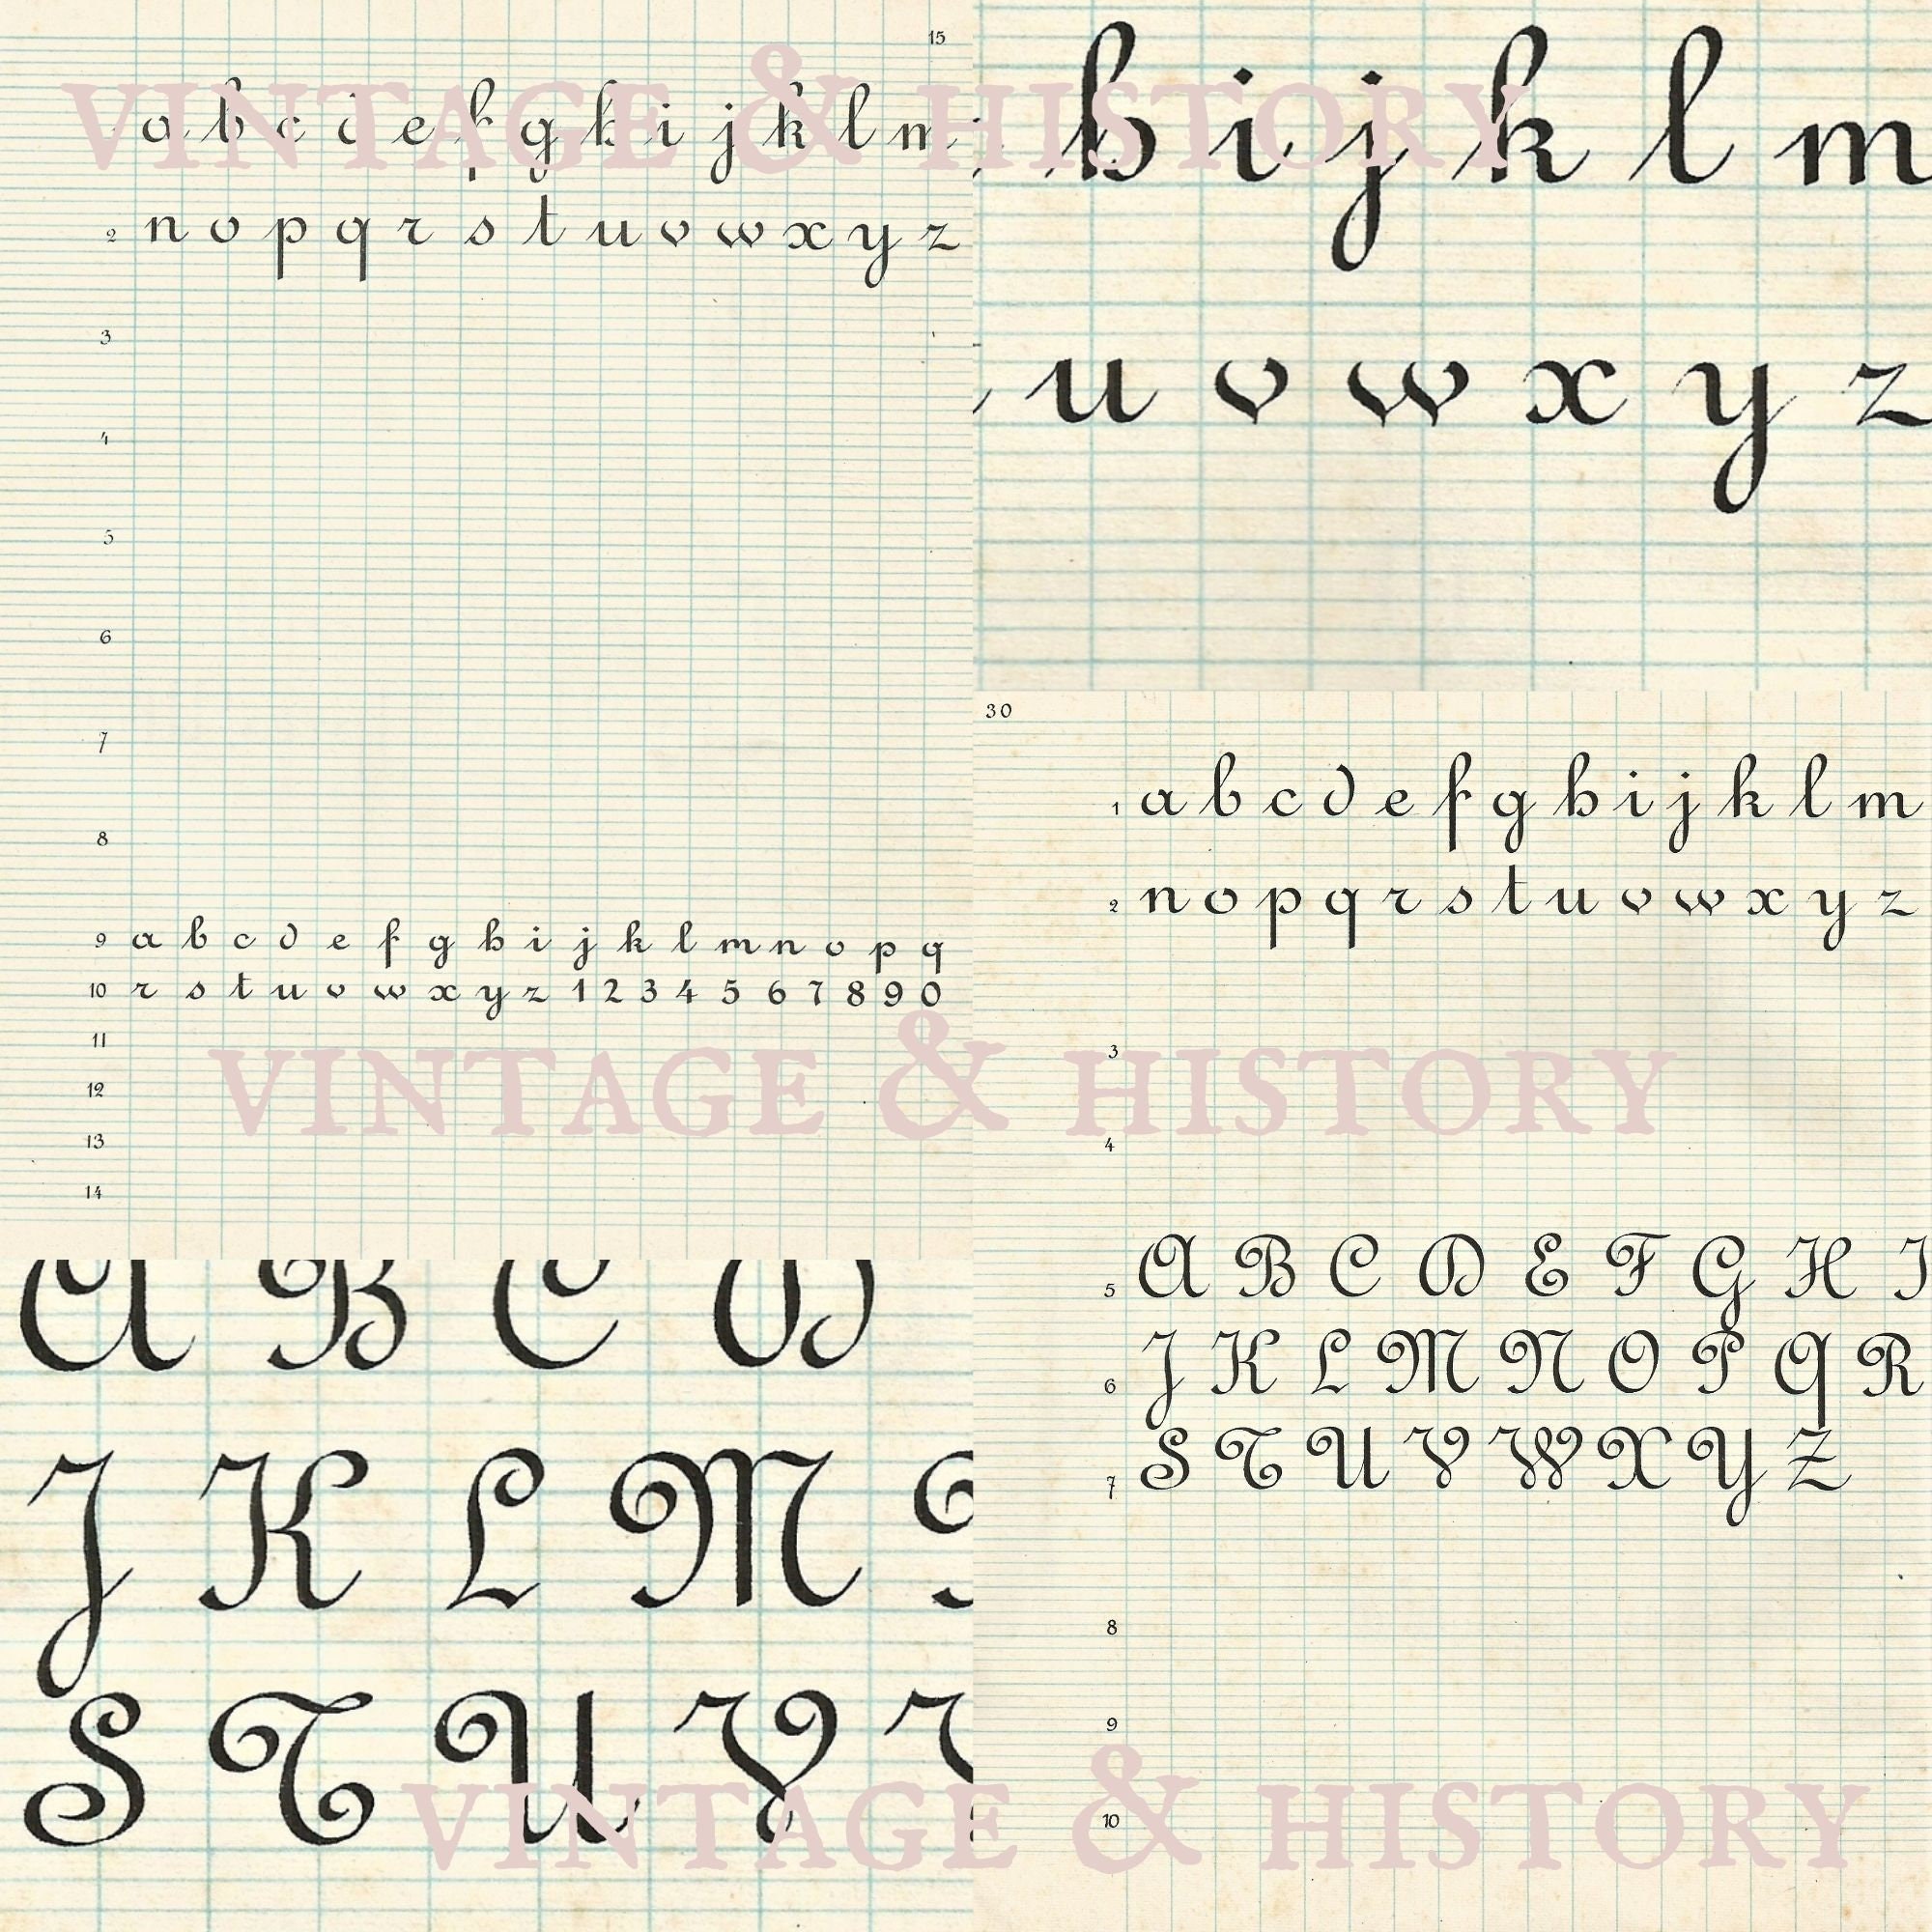 15
VINTAGE & HISTORY
a b c d e f g h i j k l m
2 n o p q r s t u v w x y z
3
4
5
6
7
8
9 a b c d e f g h i j k l m n o p q
10 r s t u v w x y z 1 2 3 4 5 6 7 8 9 0
11
12
13
14
h i j k l m
u v w x y z
30
1 a b c d e f g h i j k l m
2 n o p q r s t u v w x y z
3
VINTAGE & HISTORY
4
5 A B C D E F G H I
6 J K L M N O P Q R
7 S T U V W X Y Z
8
9
10
A B C D
J K L M
S T U V
VINTAGE & HISTORY